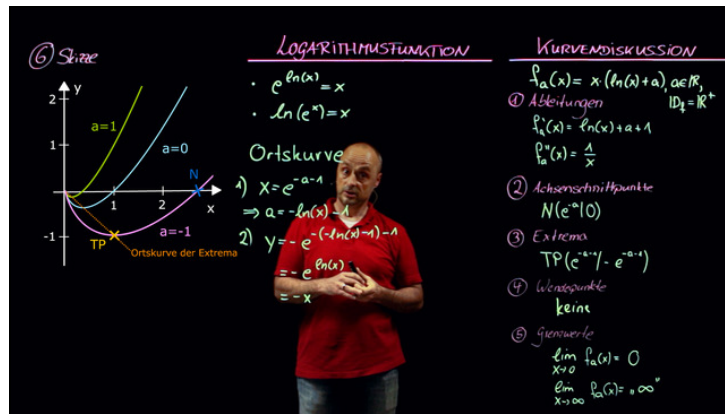 ⑥ Skizze
y
2
a=1
1
a=0
N
1
2
x
-1
TP
a=-1
Ortskurve der Extrema
LOGARITHMUSFUNKTION
• e^ln(x) = x
• ln(e^x) = x
Ortskurve
1) x = e^-a-1
⇒ a = -ln(x) - 1
2) y = - e^-(-ln(x)-1)-1
= - e^ln(x)
= - x
KURVENDISKUSSION
fₐ(x) = x · (ln(x) + a), a∈ℝ,
① Ableitungen ID_f = ℝ⁺
fₐ'(x) = ln(x) + a + 1
fₐ''(x) = 1/x
② Achsenschnittpunkte
N(e^-a|0)
③ Extrema
TP(e^-a-1|- e^-a-1)
④ Wendepunkte
keine
⑤ Grenzwerte
lim x→0 fₐ(x) = 0
lim x→∞ fₐ(x) = „∞"